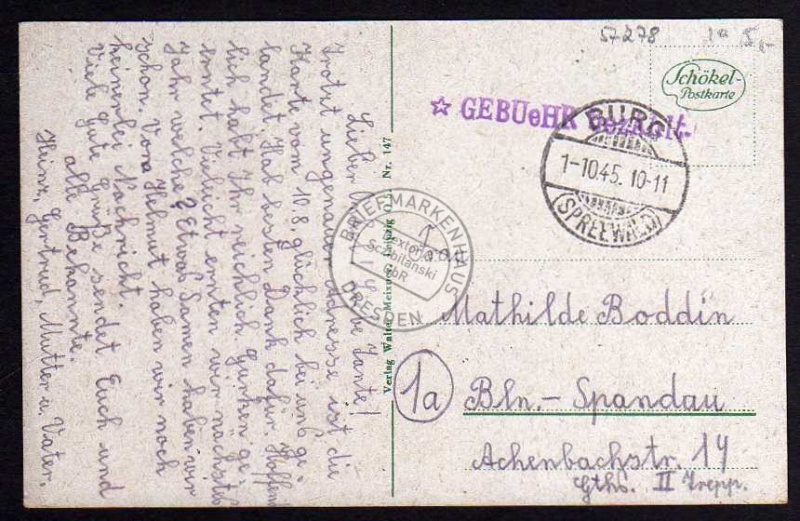 57278
Schökel-
Postkarte
☆ GEBUeHR bezahlt.
BURG
1-10.45. 10-11
(SPREEWALD)
Lieber Onkel, liebe Tante!
Trotz ungenauer Adresse ist die
Karte vom 10.8. glücklich bei uns ge-
landet. Hab besten Dank dafür. Hoffent-
lich habt Ihr reichlich Gurken ge-
erntet. Vieleicht ernten wir nächstes
Jahr welche? Etwas Samen haben wir
schon. Von Helmut haben wir noch
keinerlei Nachricht.
Viele gute Grüße sendet Euch und
alle Bekannte.
Heinz, Gertrud, Mutter u. Vater.
Verlag Walter Meixner, Leipzig Nr. 147
BRIEFMARKENHAUS
GbR
DRESDEN
Frau
Mathilde Boddin
1a
Bln.- Spandau
Achenbachstr. 14
Gths. II Trepp.